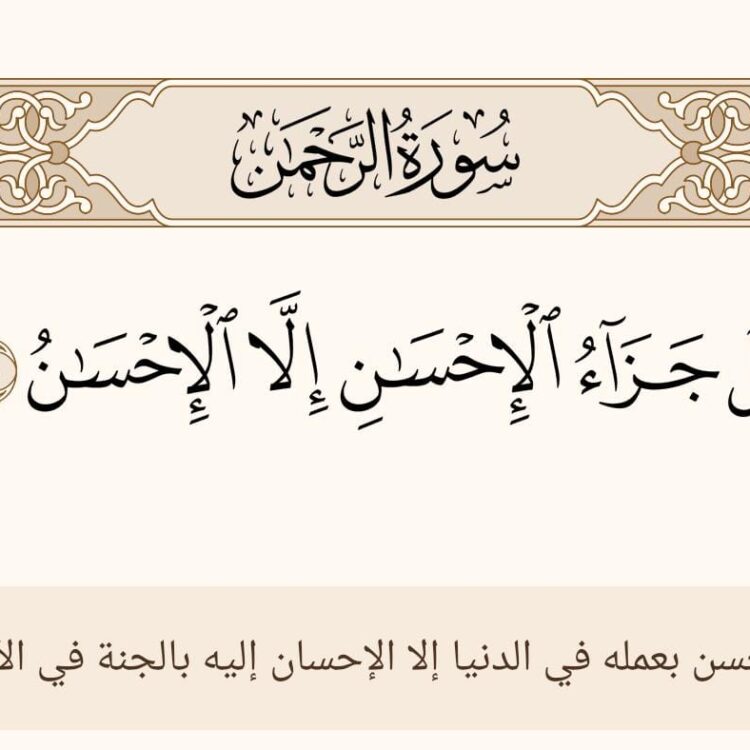 سُورَةُ الرَّحْمَٰن
جَزَآءُ ٱلْإِحْسَـٰنِ إِلَّا ٱلْإِحْسَـٰنُ
بعمله في الدنيا إلا الإحسان إليه بالجنة في